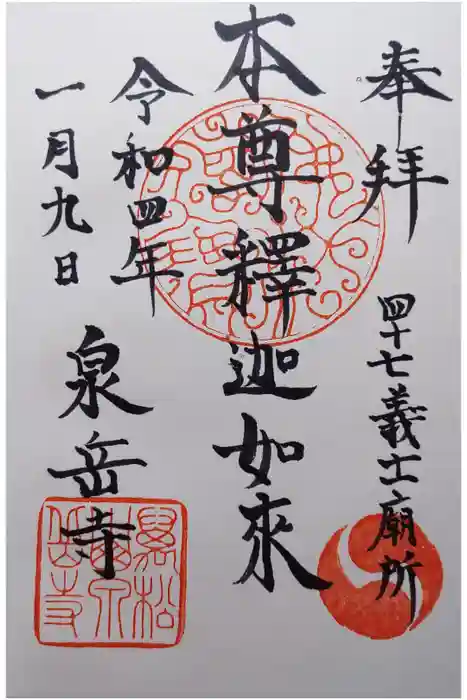 奉拝
四十七義士廟所
本尊釋迦如來
令和四年
一月九日
泉岳寺
萬松
山泉
岳寺